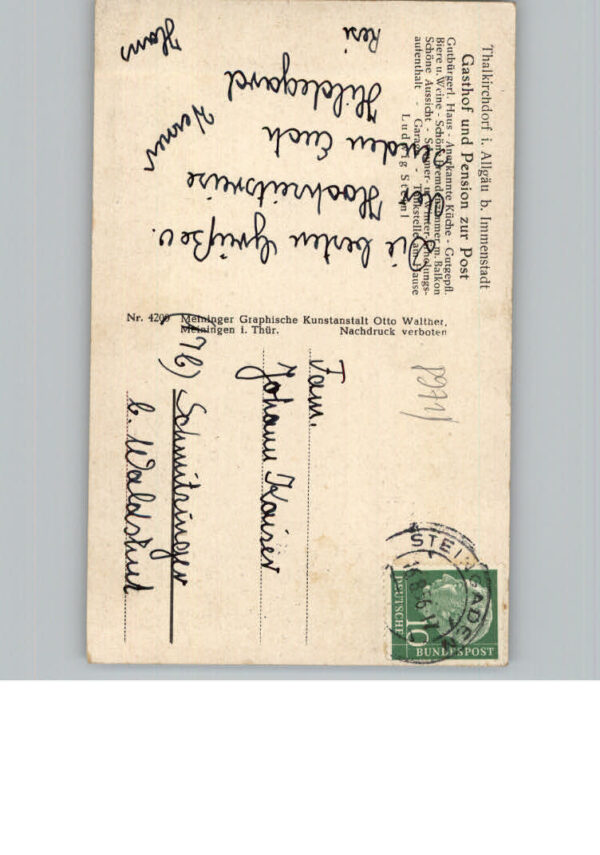 Thalkirchdorf i. Allgäu b. Immenstadt
Gasthof und Pension zur Post
Gutbürgerl. Haus - Anerkannte Küche - Gutgepfl.
Biere u. Weine - Schöne Fremdenzimmer m. Balkon
Schöne Aussicht - Sommer- u. Winter-Erholungs-
aufenthalt - Garage - Tankstelle am Hause
Ludwig
Die besten Grüße v.
der Hochzeitsreise
senden Euch
Hildegard
Werner
Resi
Hans
Nr. 4209 Meininger Graphische Kunstanstalt Otto Walther,
Meiningen i. Thür. Nachdruck verboten
Fam.
Johann Kaiser
(17b) Schmitzinger
b. Waldshut
STEINGADEN
DEUTSCHE
BUNDESPOST
10